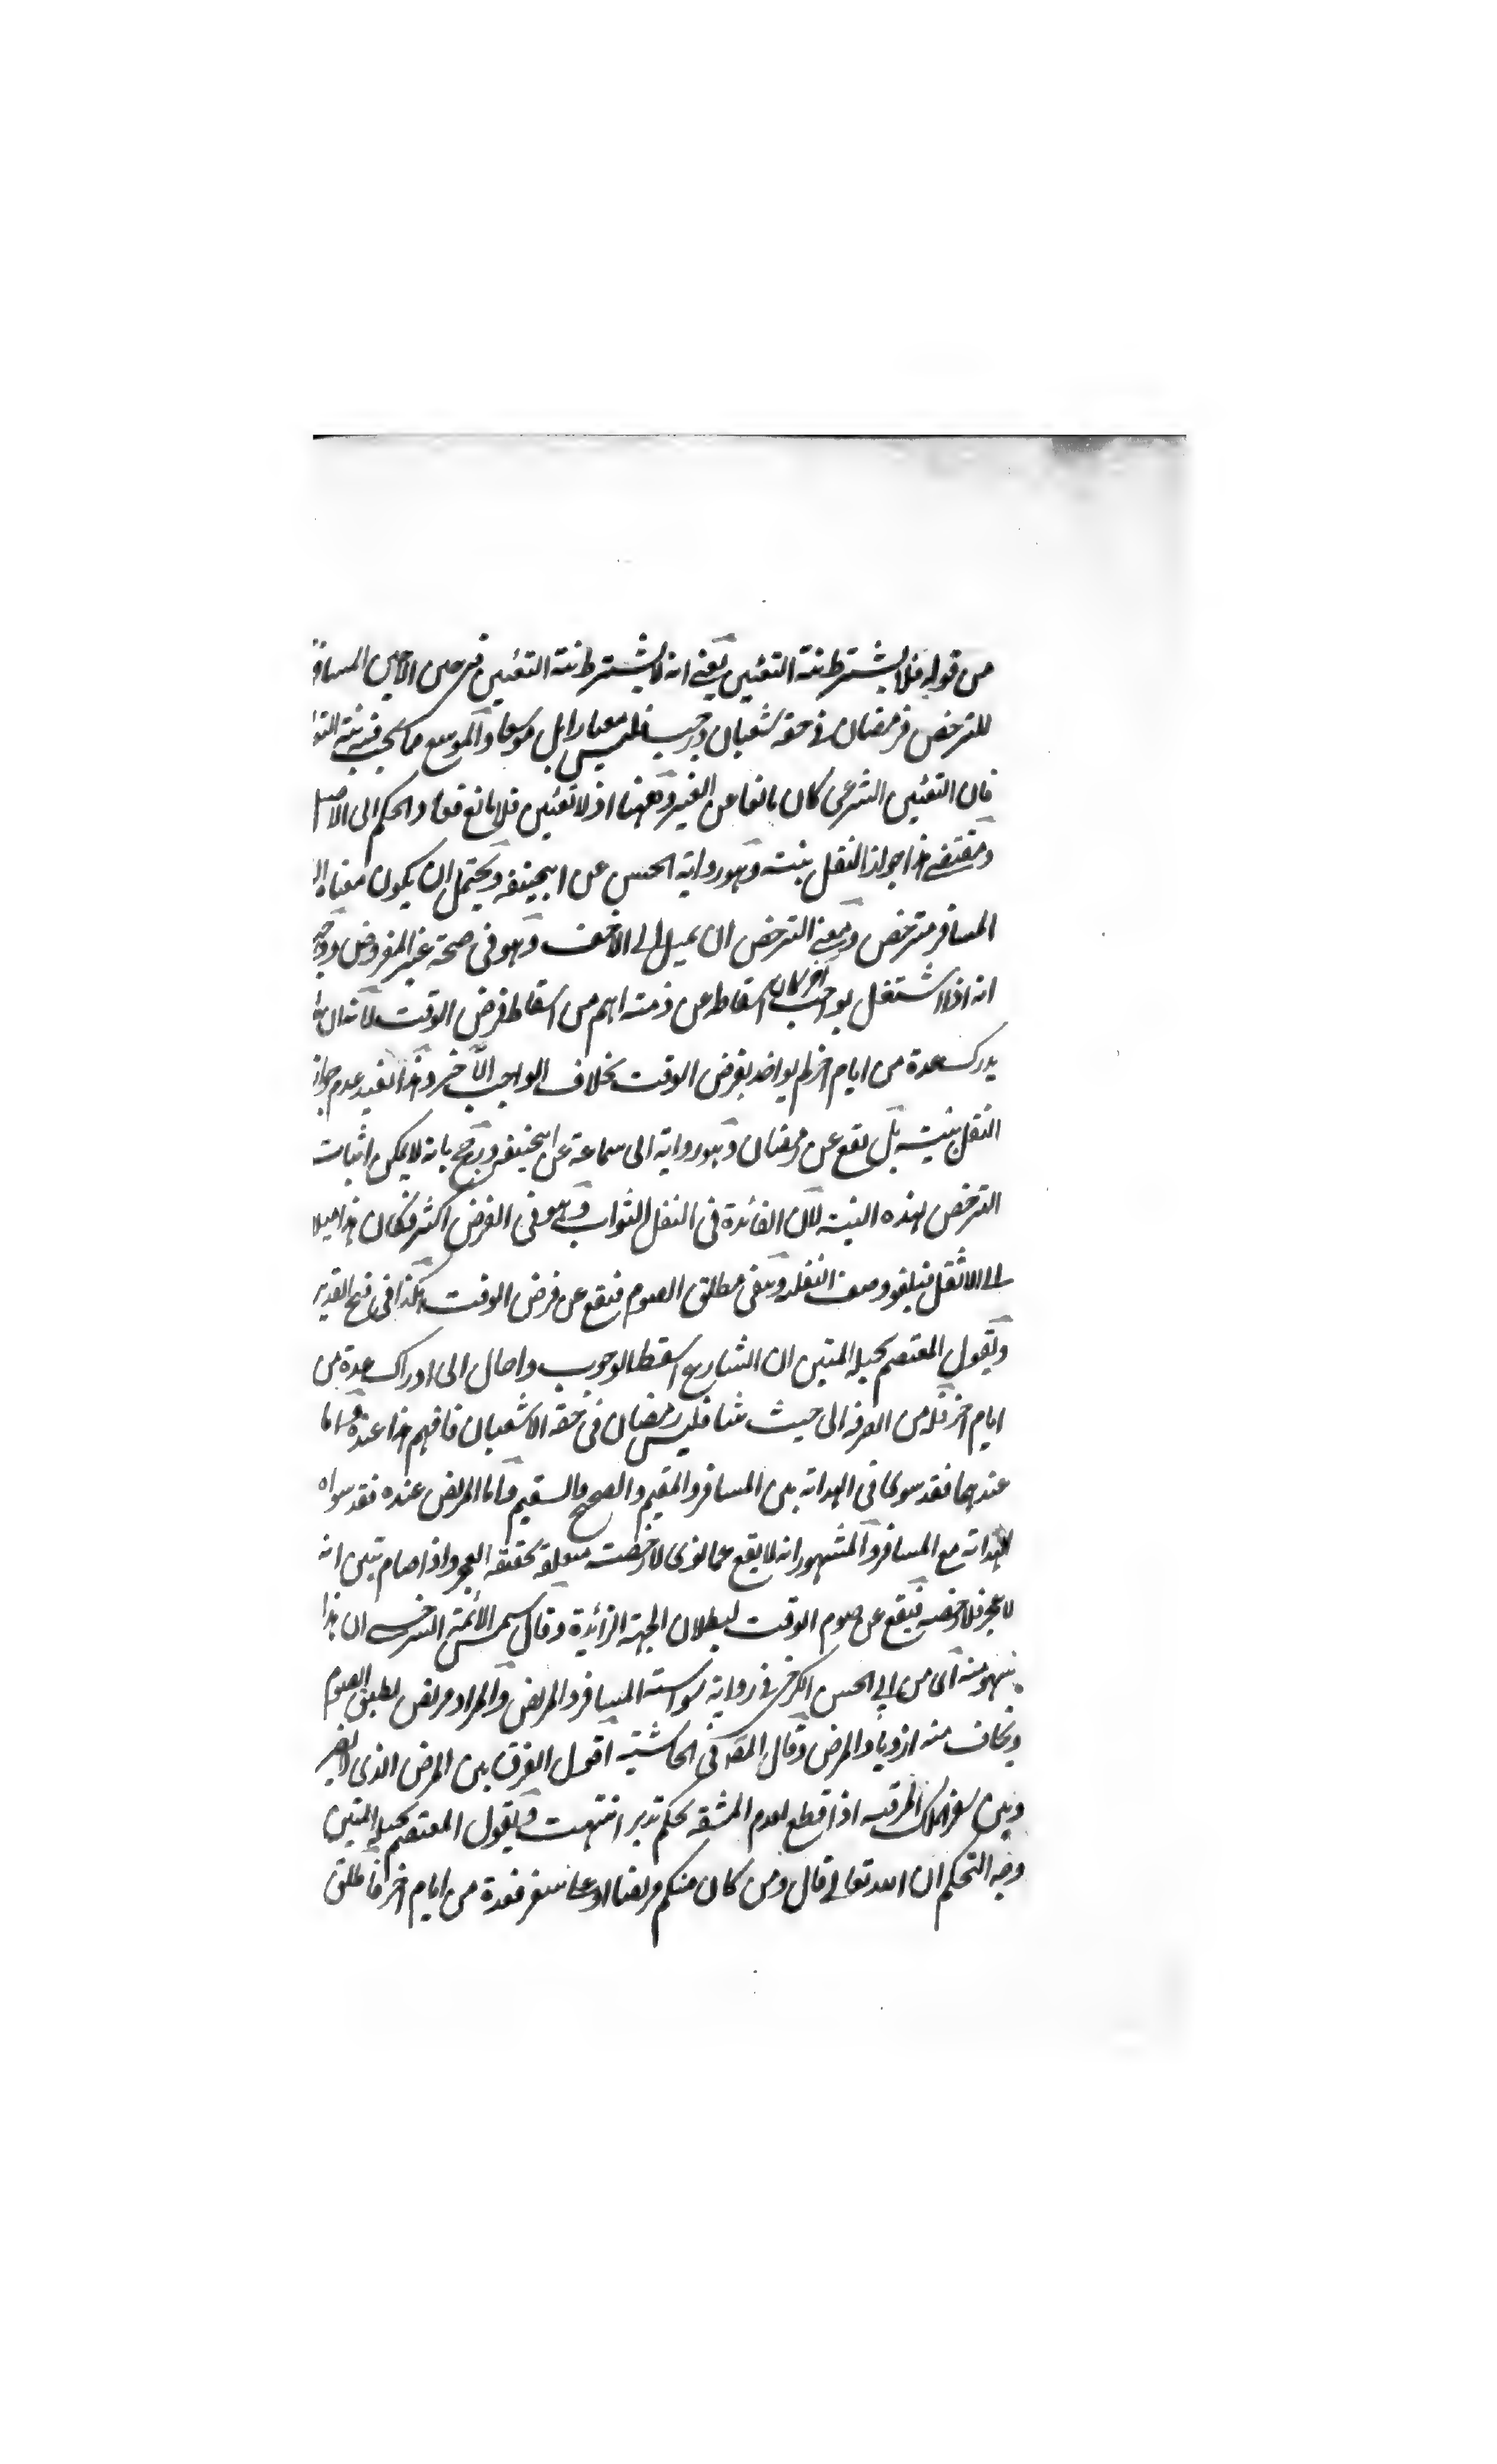 من قوله فلا يشترط نية التعيين يعني انه لا يشترط نية التعيين في حين الا حين المسافر
للترخص فرمضان في حقه كشعبان ورجب فليس معيارا بل موسعا والموسع مما يجب فيه نية
فان التعيين الشرعي كان مانعا عن الغير وههنا اذ لا تعيين فلا مانع فعاد الحكم الى الاصل
ومقتضى هذا جواز النفل بنيته وهو رواية الحسن عن ابيحنيفه ويحتمل ان يكون معناه
المسافر مترخص ومعنى الترخص ان يميل الى الاخف وهو في صحة غير المفروض
انه اذا اشتغل بواجب آخر كان اسقاطه عن ذمته اهم من اسقاط فرض الوقت لانه ان لم
يدرك عدة من ايام اخر لم يواخذ بفرض الوقت بخلاف الواجب الآخر وهذا يفيد عدم جواز
النفل بنيته بل تقع عن رمضان وهو رواية ابن سماعة عن ابيحنيفه ويرجح بانه لا يمكن اثبات
الترخص لهذه النية لان الفائدة في النفل الثواب وهو في الفرض اكثر فكان هذا ميلا
الى الاثقل فيلغو وصف النفلية ويبقى مطلق الصوم فيقع عن فرض الوقت هكذا في فتح القدير
ويقول المعتصم بحبله المتين ان الشارع اسقط الوجوب واحال الى ادراك عدة من
ايام اخر فله من الصرف الى حيث شا فليس رمضان في حقه الا كشعبان فافهم هذا عنده واما
عندهما فقد سوى في الهداية بين المسافر والمقيم والصحيح والسقيم واما المريض عنده فقد سواه
الهداية مع المسافر والمشهور انه لا يقع عما نوى لان رخصته متعلقة بحقيقة العجز واذا صام تبين انه
لا عجز فلا رخصة فيقع عن صوم الوقت لبطلان الجهة الزائدة وقال شمس الائمة السرخسي ان هذا
سهو منه اى من ابي الحسن الكرخي في رواية مواساة المسافر والمريض والمراد مريض يطيق الصوم
ويخاف منه ازدياد المرض وقال المصه في الحاشية اقول الفرق بين المرض الذي لا يضر
وبين سفر الملك المرفه اذا قطع لعدم المشقة تحكم تدبر انتهت ويقول المعتصم بحبله المتين
وجه التحكم ان الله تعالى قال ومن كان منكم مريضا او على سفر فعدة من ايام اخر فاطلق